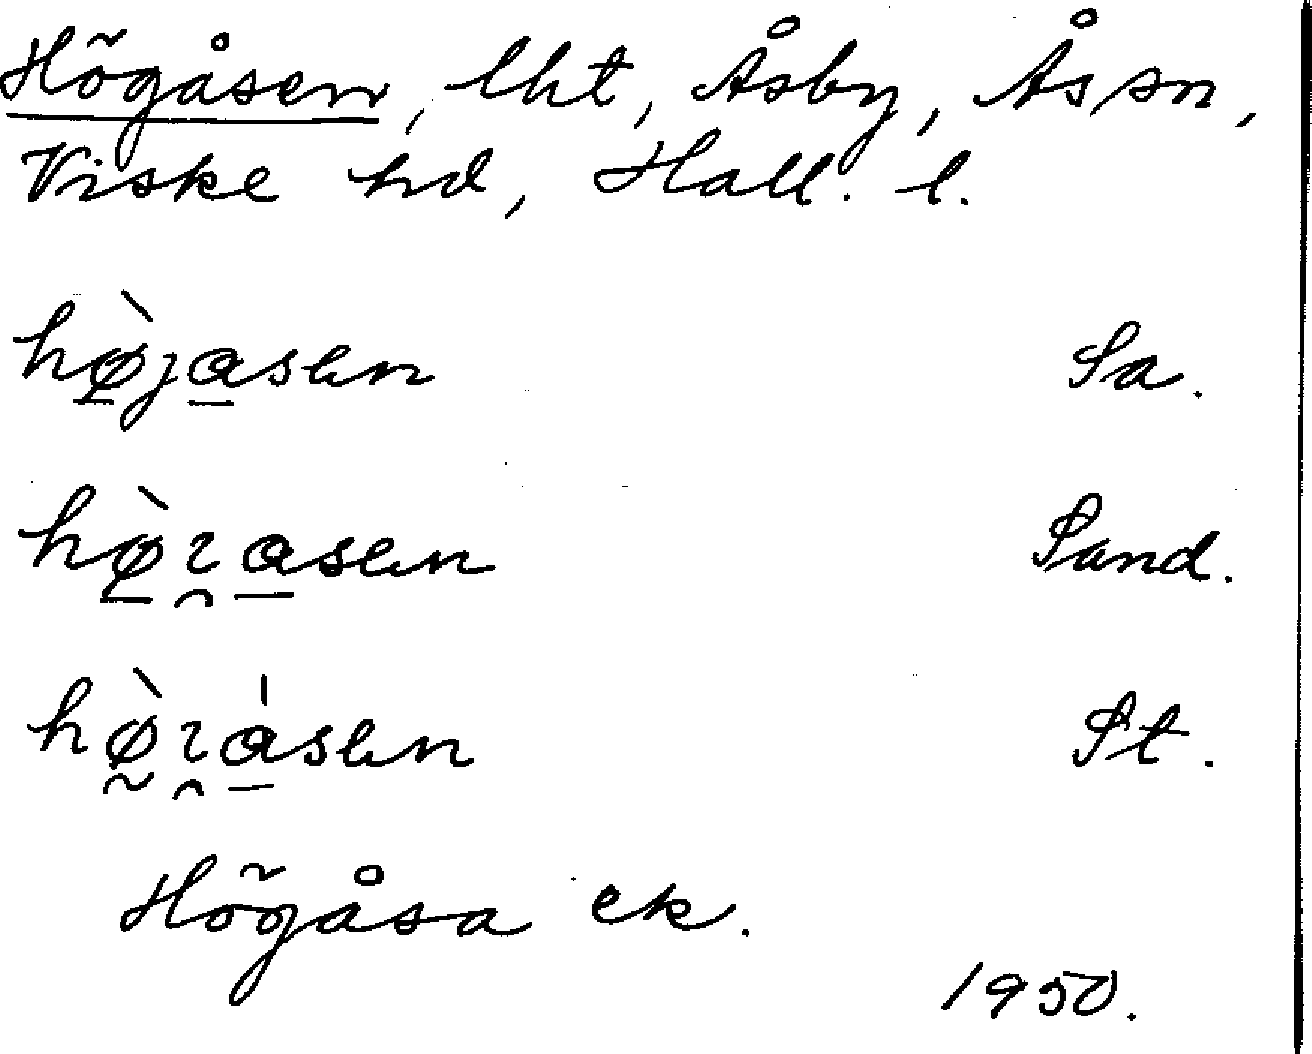 Högåsen, lht, Åsby, Ås sn,
Viske hd, Hall. l.
hø̠̀ja̠sen Sa.
hø̠̀ɿ̯a̠sen Sand.
hø̰̀ɿ̯a̠̍sen St.
Högåsa ek.
1950.